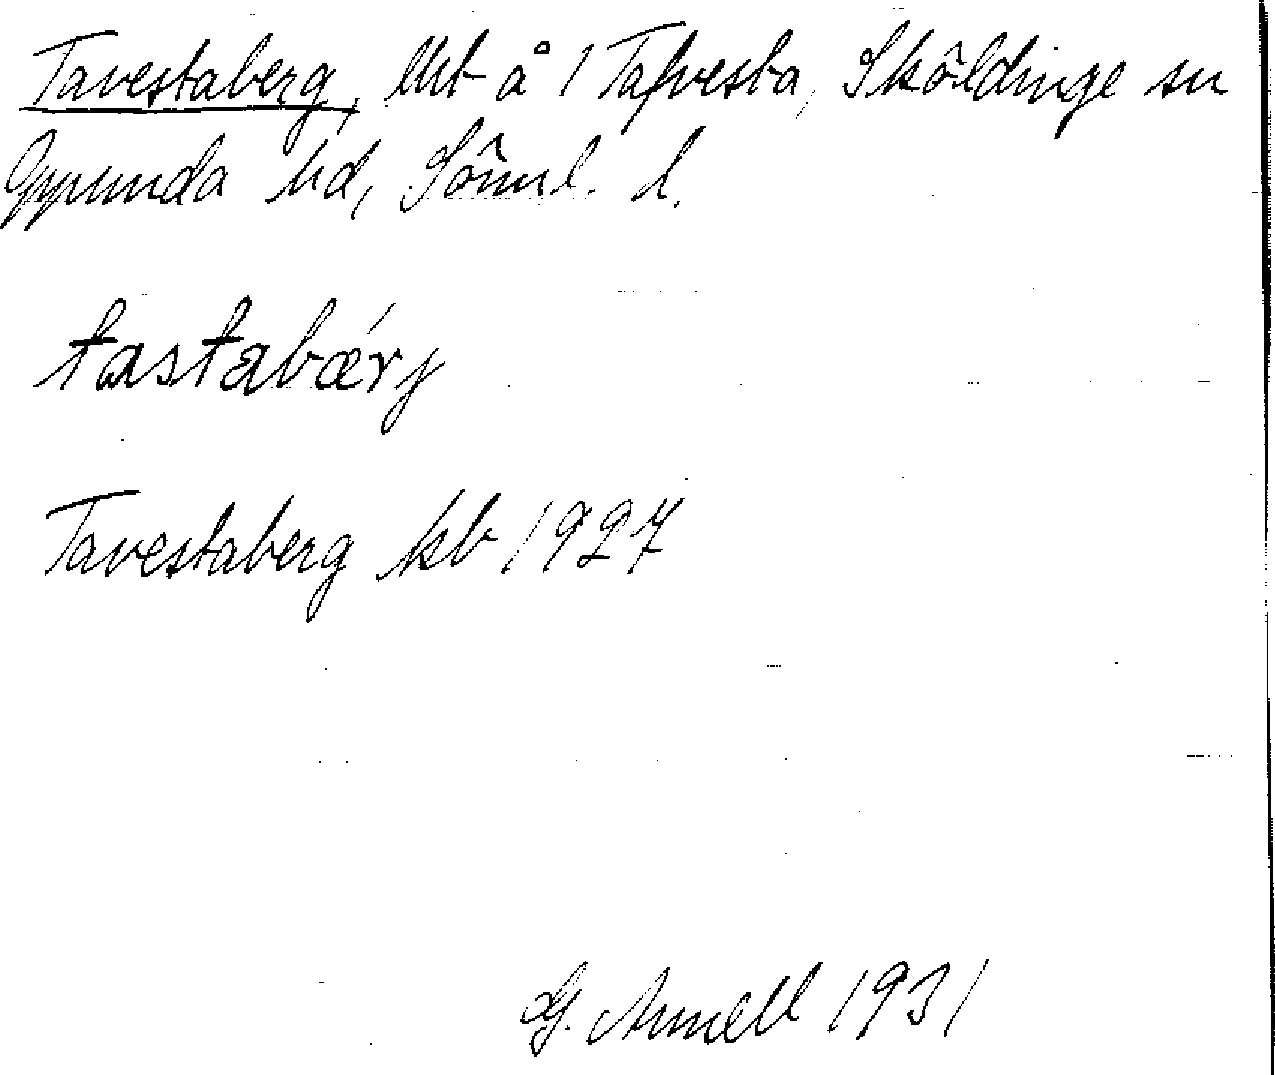 Tavestaberg, lht å 1 Tafvesta, Sköldinge sn
Oppunda hd, Söml. l.
tastabǽrj
Tavestaberg kb 1927
G. Arnell 1931